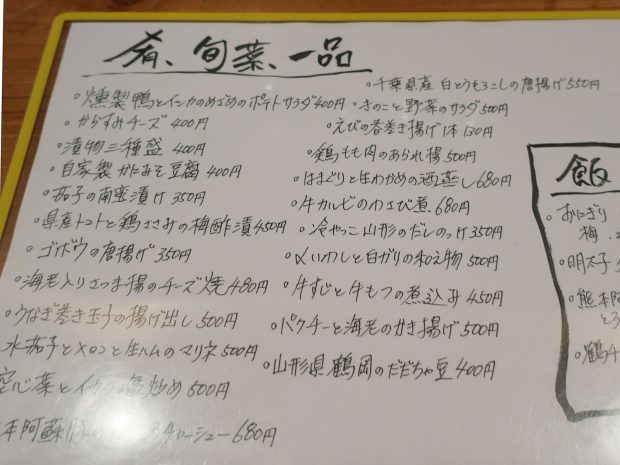 肴、旬菜、一品
・燻製鴨とインカのめざめのポテトサラダ400円
・からすみチーズ 400円
・漬物三種盛 400円
・自家製かにみそ豆腐 400円
・茄子の南蛮漬け 350円
・県産トマトと鶏ささみの梅酢漬450円
・ゴボウの唐揚げ 350円
・海老入りさつま揚のチーズ焼480円
・うなぎ巻き玉子の揚げ出し 500円
水茄子とメロンと生ハムのマリネ500円
空心菜とイカの塩炒め 500円
本阿蘇 チャーシュー 680円
・千葉県産 白とうもろこしの唐揚げ 550円
・きのこと野菜のサラダ 500円
・えびの春巻き揚げ1本130円
・鶏もも肉のあられ揚500円
・はまぐりと生わかめの酒蒸し680円
・牛カルビのわさび煮 680円
・冷やっこ山形のだしのっけ350円
・〆いわしと白ガリの和え物 500円
・牛すじと牛もつの煮込み 450円
・パクチーと海老のかき揚げ500円
・山形県鶴岡のだだちゃ豆 400円
飯
・おにぎり
梅
・明太子
・熊本阿
と
・鶴